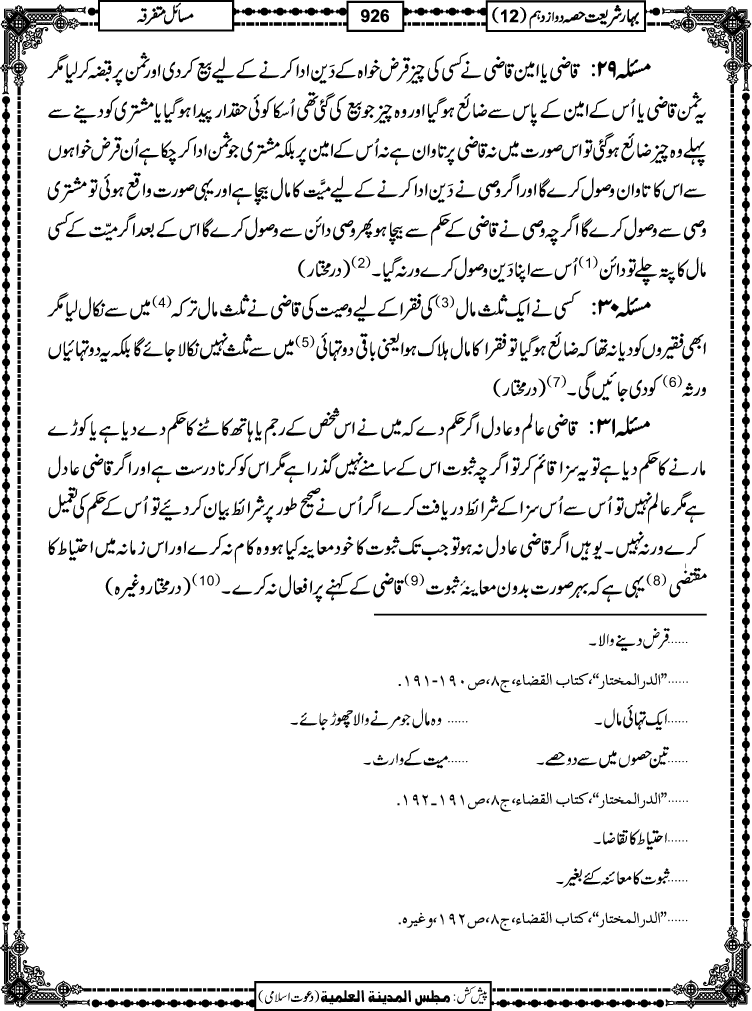 بہارشریعت حصہ دوازدہم (12)
926
مسائل متفرقہ
مسئلہ ۲۹: قاضی یا امین قاضی نے کسی کی چیز قرض خواہ کے دَین ادا کرنے کے لیے بیع کر دی اور ثمن پر قبضہ کر لیا مگر
یہ ثمن قاضی یا اُس کے امین کے پاس سے ضائع ہوگیا اور وہ چیز جو بیع کی گئی تھی اُسکا کوئی حقدار پیدا ہوگیا یا مشتری کو دینے سے
پہلے وہ چیز ضائع ہوگئی تو اس صورت میں نہ قاضی پر تاوان ہے نہ اُس کے امین پر بلکہ مشتری جو ثمن ادا کر چکا ہے اُن قرض خواہوں
سے اس کا تاوان وصول کرے گا اور اگر وصی نے دَین ادا کرنے کے لیے میّت کا مال بیچا ہے اور یہی صورت واقع ہوئی تو مشتری
وصی سے وصول کرے گا اگرچہ وصی نے قاضی کے حکم سے بیچا ہو پھر وصی دائن سے وصول کرے گا اس کے بعد اگر میّت کے کسی
مال کا پتہ چلے تو دائن (1) اُس سے اپنا دَین وصول کرے ورنہ گیا۔ (2) (درمختار)
مسئلہ ۳۰: کسی نے ایک ثلث مال (3) کی فقرا کے لیے وصیت کی قاضی نے ثلث مال ترکہ (4) میں سے نکال لیا مگر
ابھی فقیروں کو دیا نہ تھا کہ ضائع ہوگیا تو فقرا کا مال ہلاک ہوا یعنی باقی دو تہائی (5) میں سے ثلث نہیں نکالا جائے گا بلکہ یہ دو تہائیاں
ورثہ (6) کو دی جائیں گی۔ (7) (درمختار)
مسئلہ ۳۱: قاضی عالم و عادل اگر حکم دے کہ میں نے اس شخص کے رجم یا ہاتھ کاٹنے کا حکم دے دیا ہے یا کوڑے
مارنے کا حکم دیا ہے تو یہ سزا قائم کر تو اگرچہ ثبوت اس کے سامنے نہیں گذرا ہے مگر اس کو کرنا درست ہے اور اگر قاضی عادل
ہے مگر عالم نہیں تو اُس سے اُس سزا کے شرائط دریافت کرے اگر اُس نے صحیح طور پر شرائط بیان کر دیئے تو اُس کے حکم کی تعمیل
کرے ورنہ نہیں۔ یوہیں اگر قاضی عادل نہ ہو تو جب تک ثبوت کا خود معاینہ کیا ہو وہ کام نہ کرے اور اس زمانہ میں احتیاط کا
مقتضٰی (8) یہی ہے کہ بہر صورت بدون معاینۂ ثبوت (9) قاضی کے کہنے پر افعال نہ کرے۔ (10) (درمختار وغیرہ)
......قرض دینے والا۔
......”الدرالمختار“، کتاب القضاء، ج۸، ص۱۹۰-۱۹۱.
......ایک تہائی مال۔ ...... وہ مال جو مرنے والا چھوڑ جائے۔
......تین حصوں میں سے دو حصے۔ ......میت کے وارث۔
......”الدرالمختار“، کتاب القضاء، ج۸، ص۱۹۱۔۱۹۲.
......احتیاط کا تقاضا۔
......ثبوت کا معائنہ کئے بغیر۔
......”الدرالمختار“، کتاب القضاء، ج۸، ص۱۹۲، وغیرہ.
پیش کش: مجلس المدینة العلمیة (دعوت اسلامی)